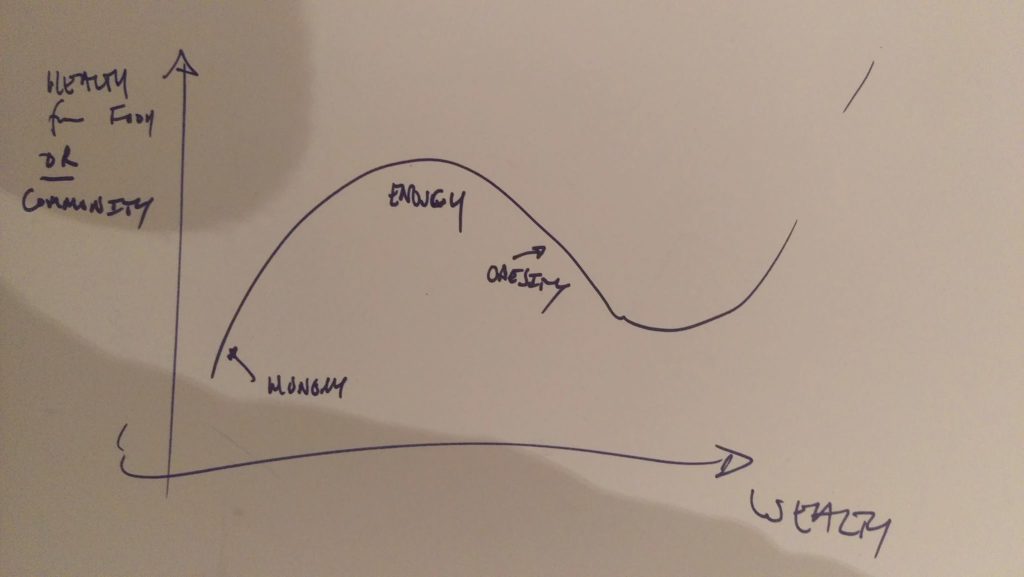 HEALTH
from FOOD
OR
COMMUNITY
ENOUGH
OBESITY
HUNGRY
WEALTH